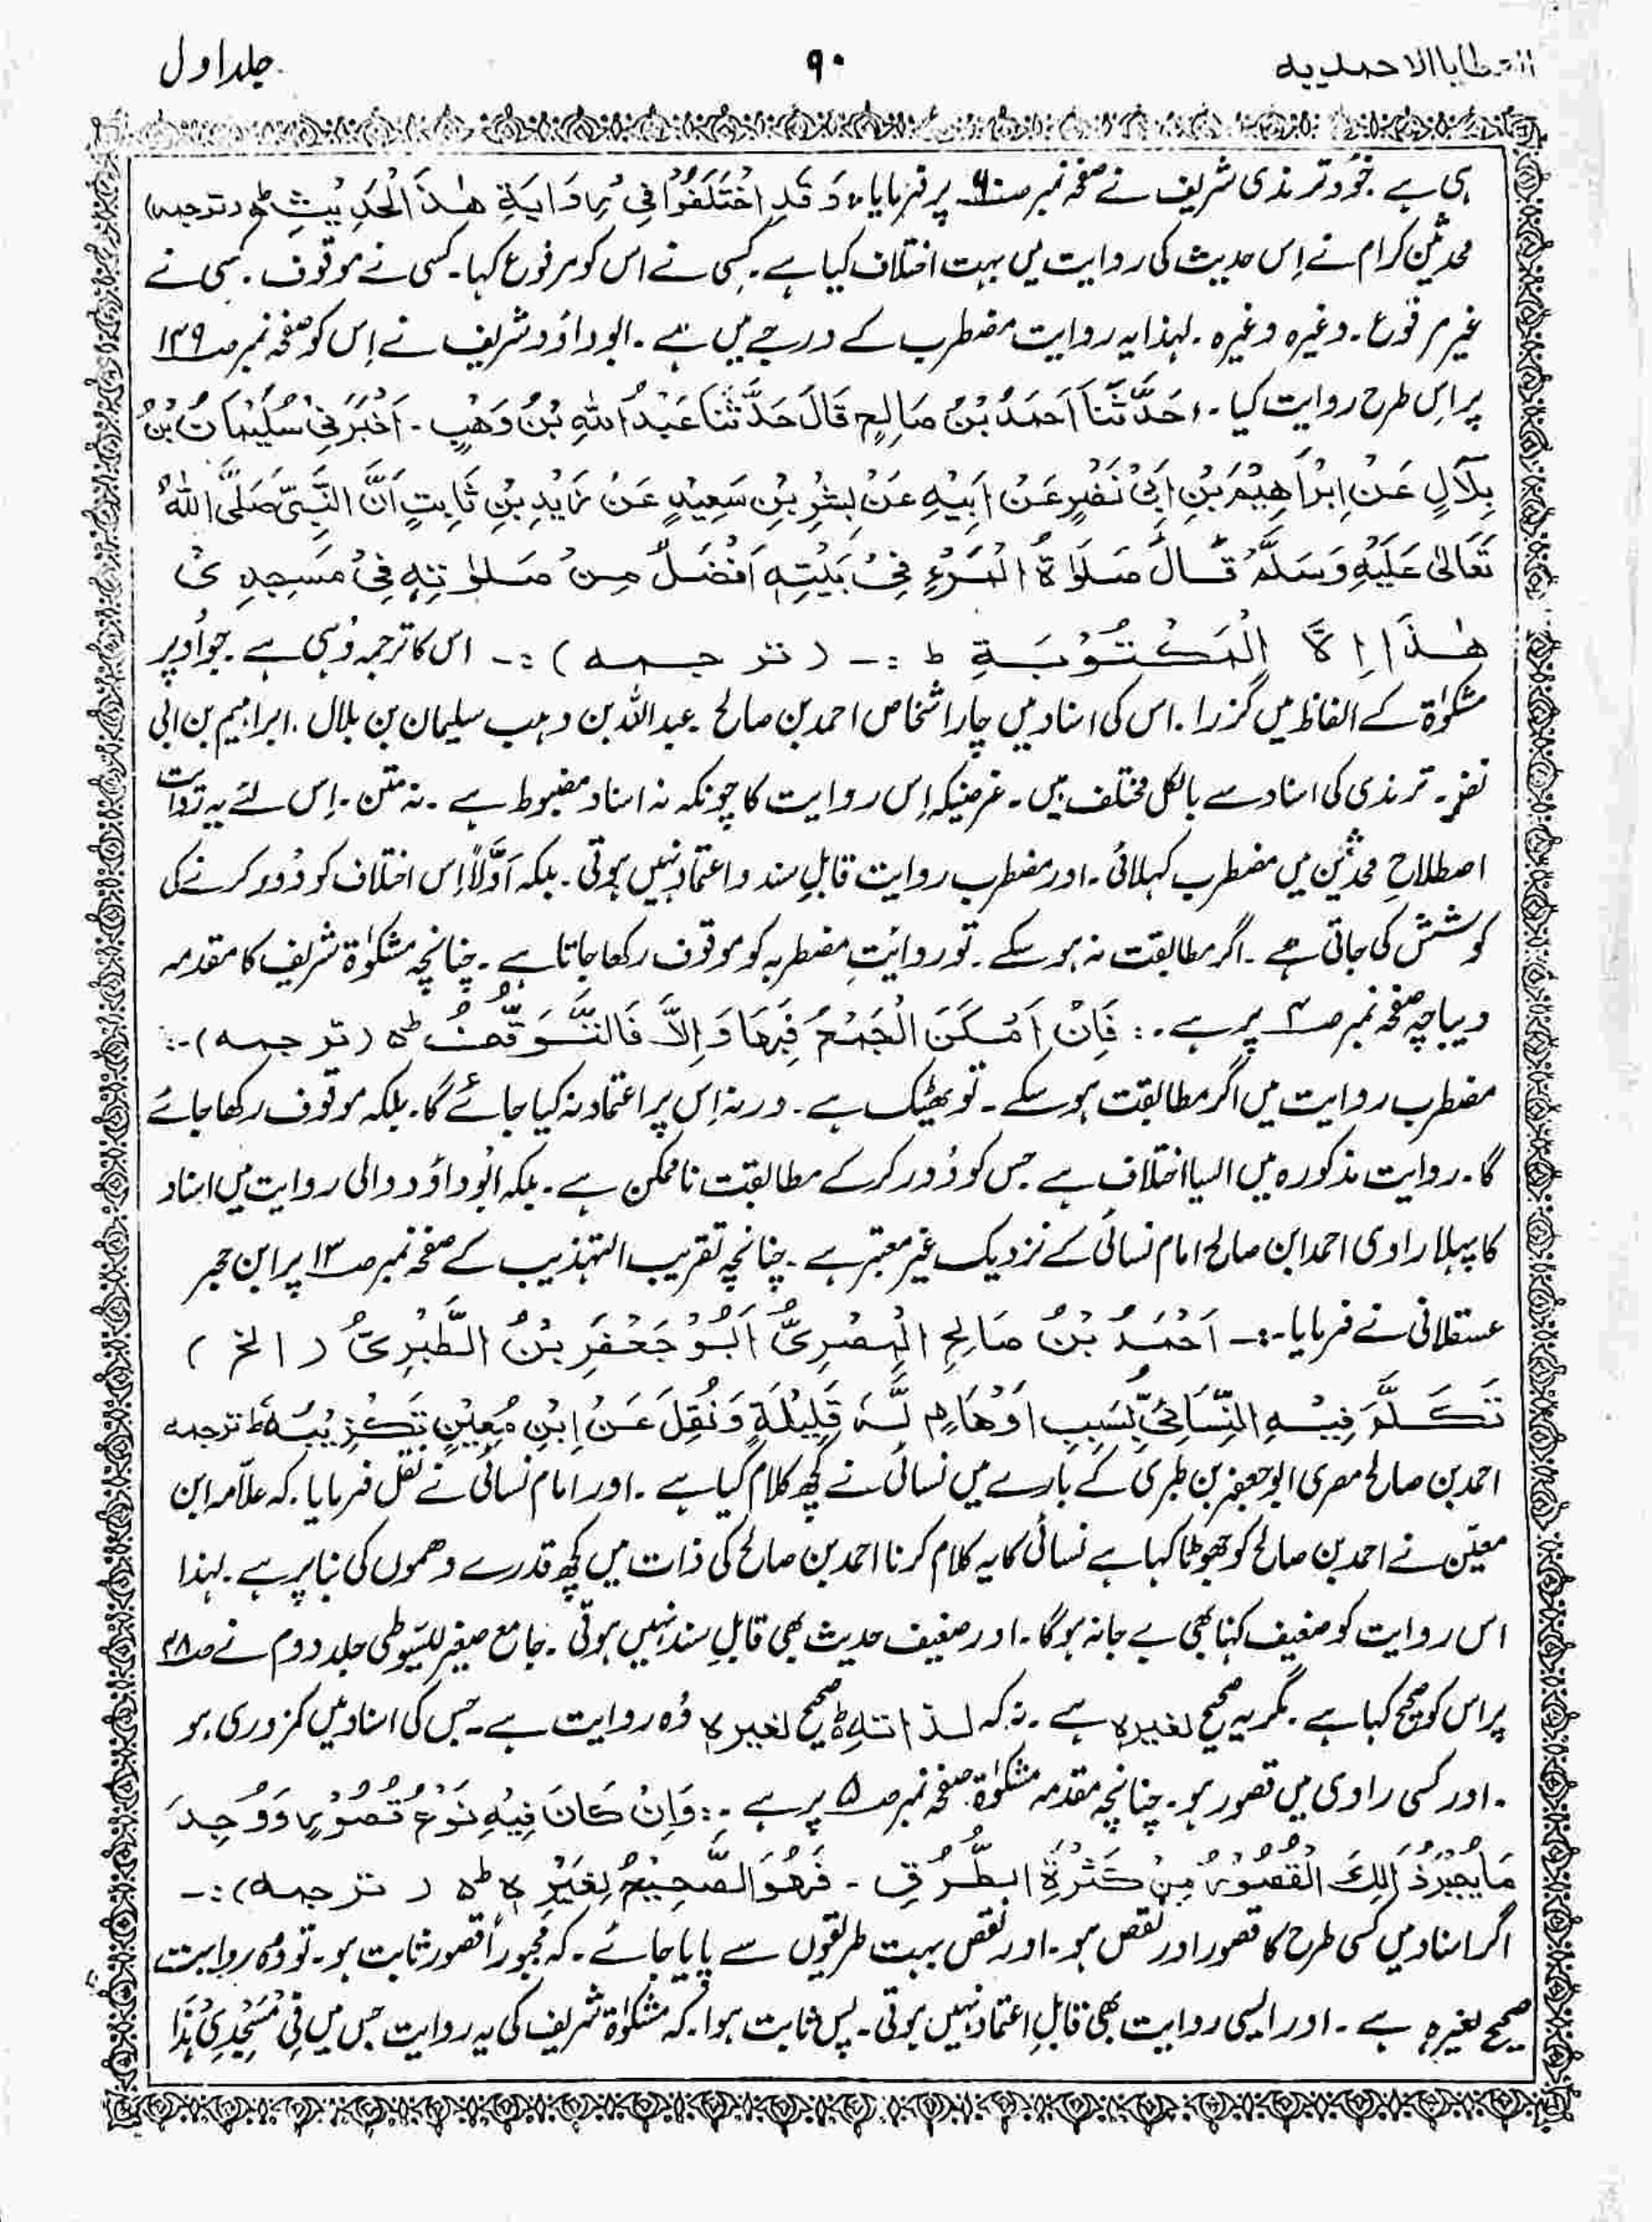 العطایا الاحمدیہ ۹۰ جلد اول
ہی ہے ۔ خود ترمذی شریف نے صفحہ نمبر صـ۶۰ پر فرمایا، وَقَدِ اخْتَلَفُوْا فِیْ رِوَایَةِ هٰذَا الْحَدِیْثِ ط (ترجمہ)
محدثین کرام نے اِس حدیث کی روایت میں بہت اختلاف کیا ہے ۔ کسِی نے اس کو مرفوع کہا ۔ کسی نے موقوف ۔ کسی نے
غیر مرفوع ۔ وغیرہ وغیرہ ۔ لہٰذا یہ روایت مضطرب کے درجے میں ہے ۔ ابوداؤد شریف نے اِس کو صفحہ نمبر صـ۱۴۹
پر اِس طرح روایت کیا ۔ حَدَّثَنَا اَحمَدُ بْنُ صَالِحٍ قَالَ حَدَّثَنَا عَبْدُ اللهِ بْنُ وَهْبٍ ۔ اَخْبَرَنِیْ سُلَیْمَانُ بْنُ
بِلَالٍ عَنْ اِبْرَاهِیْمَ بْنِ اَبِیْ نَضْرٍ عَنْ اَبِیْهِ عَنْ بُشْرِ بْنِ سَعِیْدٍ عَنْ زَیْدِ بْنِ ثَابِتٍ اَنَّ النَّبِیَّ صَلَّی اللهُ
تَعَالٰی عَلَیْهِ وَسَلَّمَ قَالَ صَلَوٰةُ الْمَرْءِ فِیْ بَیْتِهٖ اَفْضَلُ مِنْ صَلٰوتِهٖ فِیْ مَسْجِدِیْ
هٰذَا اِلَّا الْمَکْتُوْبَةِ ط :۔ (ترجمہ) :۔ اس کا ترجمہ وُہی ہے ۔ جو اُوپر
مشکوٰۃ کے الفاظ میں گزرا ۔ اس کی اسناد میں چار اشخاص احمد بن صالح ۔ عبد اللہ بن وہب سلیمان بن بلال ۔ ابراہیم بن ابی
نضر ۔ ترمذی کی اسناد سے بالکل مختلف ہیں ۔ غرضیکہ اِس روایت کا چونکہ نہ اسناد مضبوط ہے ۔ نہ متن ۔ اِس لئے یہ روایت
اصطلاحِ محدثین میں مضطرب کہلائی ۔ اور مضطرب روایت قابلِ سند و اعتماد نہیں ہوتی ۔ بلکہ اَوَّلاً اِس اختلاف کو دُور کرنے کی
کوشش کی جاتی ہے ۔ اگر مطابقت نہ ہو سکے ۔ تو روایتِ مضطربہ کو موقوف رکھا جاتا ہے ۔ چنانچہ مشکوٰۃ شریف کا مقدمہ
دیباچہ صفحہ نمبر صـ۴ پر ہے ۔: فَاِنْ اَمْکَنَ الْجَمْعُ فَبِهَا وَاِلَّا فَالتَّوَقُّفُ ط ہ (ترجمہ) ۔:
مضطرب روایت میں اگر مطابقت ہو سکے ۔ تو ٹھیک ہے ۔ ورنہ اِس پر اعتماد نہ کیا جائے گا ۔ بلکہ موقوف رکھا جائے
گا ۔ روایت مذکورہ میں ایسا اختلاف ہے جس کو دُور کر کے مطابقت ناممکن ہے ۔ بلکہ ابُوداؤد والی روایت میں اسناد
کا پہلا راوی احمد ابن صالح امام نسائی کے نزدیک غیر معتبر ہے ۔ چنانچہ تقریب التہذیب کے صفحہ نمبر صـ۱۳ پر ابن حجر
عسقلانی نے فرمایا :۔ اَحْمَدُ بْنُ صَالِحِ الْمِصْرِیُّ اَبُوْ جَعْفَرِ بْنُ الطَّبْرِیُّ (الخ)
تَکَلَّمَ فِیْهِ النَّسَائِیُّ بِسَبَبِ اَوْهَامٍ لَّهٗ قَلِیْلَةٍ وَنُقِلَ عَنْ اِبْنِ مُعِیْنٍ تَکْزِیْبُهٗ ط ترجمہ
احمد بن صالح مصری ابو جعفر بن طبری کے بارے میں نسائی نے کچھ کلام کیا ہے ۔ اور امام نسائی نے نقل فرمایا ۔ کہ علّامہ ابن
معیّن نے احمد بن صالح کو جھوٹا کہا ہے نسائی کا یہ کلام کرنا احمد بن صالح کی ذات میں کچھ قدرے وھموں کی بنا پر ہے ۔ لہٰذا
اس روایت کو ضعیف کہنا بھی بے جا نہ ہو گا ۔ اور ضعیف حدیث بھی قابلِ سند نہیں ہوتی ۔ جامع صغیر للسیّوطی جلد دوم نے صـ۴۸
پر اس کو صحیح کہا ہے ۔ مگر یہ صحیح لغیرہ ہے ۔ نہ کہ لذاتہٖ صحیح لغیرہ وُہ روایت ہے ۔ جس کی اسناد میں کمزوری ہو
۔ اور کسی راوی میں قصور ہو ۔ چنانچہ مقدمہ مشکوٰۃ صفحہ نمبر صـ۵ پر ہے :۔ وَاِنْ کَانَ فِیْهِ نَوْعُ قُصُوْرٍ وَوُجِدَ
مَا یُجْبَرُ ذٰلِكَ الْقُصُوْرُ مِنْ کَثْرَةِ الطُّرُقِ ۔ فَهُوَ الصَّحِیْحُ لِغَیْرِہٖ ط ہ (ترجمہ) :۔
اگر اسناد میں کسی طرح کا قصور اور نقص ہو ۔ اور نقص بہت طریقوں سے پایا جائے ۔ کہ مجبوراً قصور ثابت ہو ۔ تو وہ روایت
صحیح لغیرہٖ ہے ۔ اور ایسی روایت بھی قابلِ اعتماد نہیں ہوتی ۔ پس ثابت ہوا ۔ کہ مشکوٰۃ شریف کی یہ روایت جس میں فِیْ مَسْجِدِیْ هٰذَا